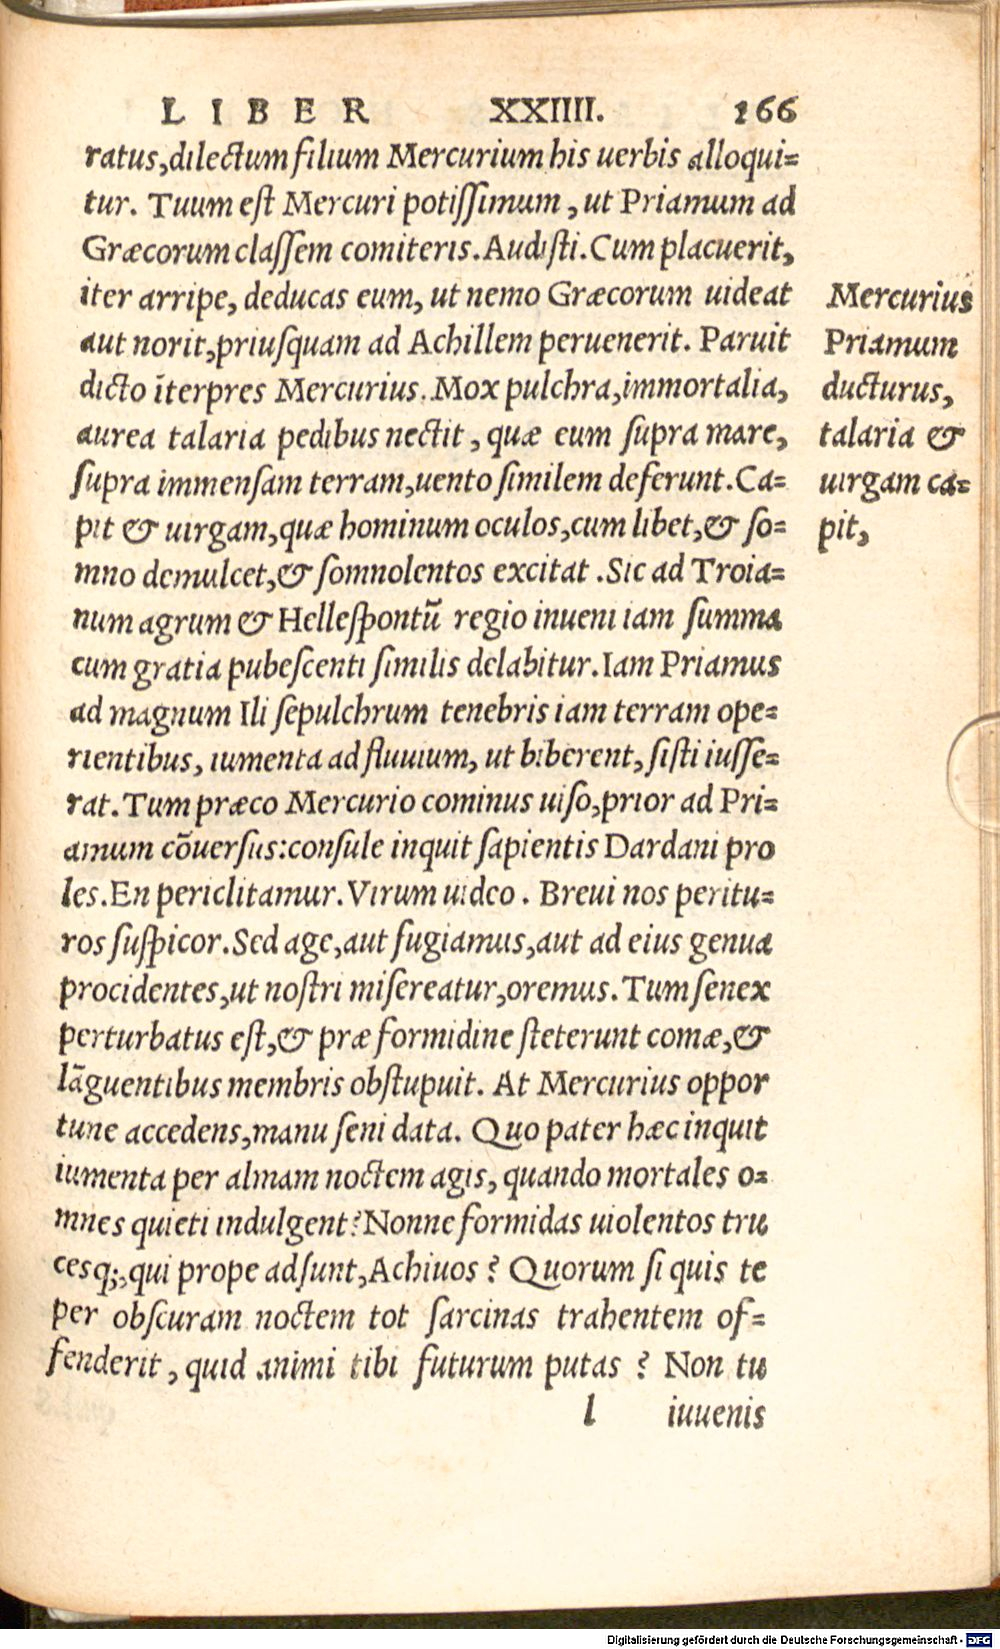 LIBER XXIIII. 166
ratus,dilectum filium Mercurium his uerbis alloqui=
tur. Tuum est Mercuri potissimum, ut Priamum ad
Græcorum classem comiteris. Audisti. Cum placuerit,
iter arripe, deducas eum, ut nemo Græcorum uideat
aut norit,priusquam ad Achillem peruenerit. Paruit
dicto īterpres Mercurius. Mox pulchra,immortalia,
aurea talaria pedibus nectit, quæ eum supra mare,
supra immensam terram,uento similem deferunt. Ca=
pit & uirgam,quæ hominum oculos,cum libet,& so=
mno demulcet,& somnolentos excitat. Sic ad Troia=
num agrum & Hellespontū regio inueni iam summa
cum gratia pubescenti similis delabitur. Iam Priamus
ad magnum Ili sepulchrum tenebris iam terram ope=
rientibus, iumenta ad fluuium, ut biberent, sisti iusse=
rat. Tum præco Mercurio cominus uiso,prior ad Pri=
amum cōuersus:consule inquit sapientis Dardani pro
les. En periclitamur. Virum uideo. Breui nos peritu=
ros suspicor. Sed age,aut fugiamus,aut ad eius genua
procidentes,ut nostri misereatur,oremus. Tum senex
perturbatus est,& præ formidine steterunt comæ,&
lāguentibus membris obstupuit. At Mercurius oppor
tune accedens,manu seni data. Quo pater hæc inquit
iumenta per almam noctem agis, quando mortales o=
mnes quieti indulgent? Nonne formidas uiolentos tru
cesq;,qui prope adsunt,Achiuos? Quorum si quis te
per obscuram noctem tot sarcinas trahentem of=
fenderit, quid animi tibi futurum putas? Non tu
l iuuenis
Mercurius
Priamum
ducturus,
talaria &
uirgam ca=
pit,
Digitalisierung gefördert durch die Deutsche Forschungsgemeinschaft - DFG